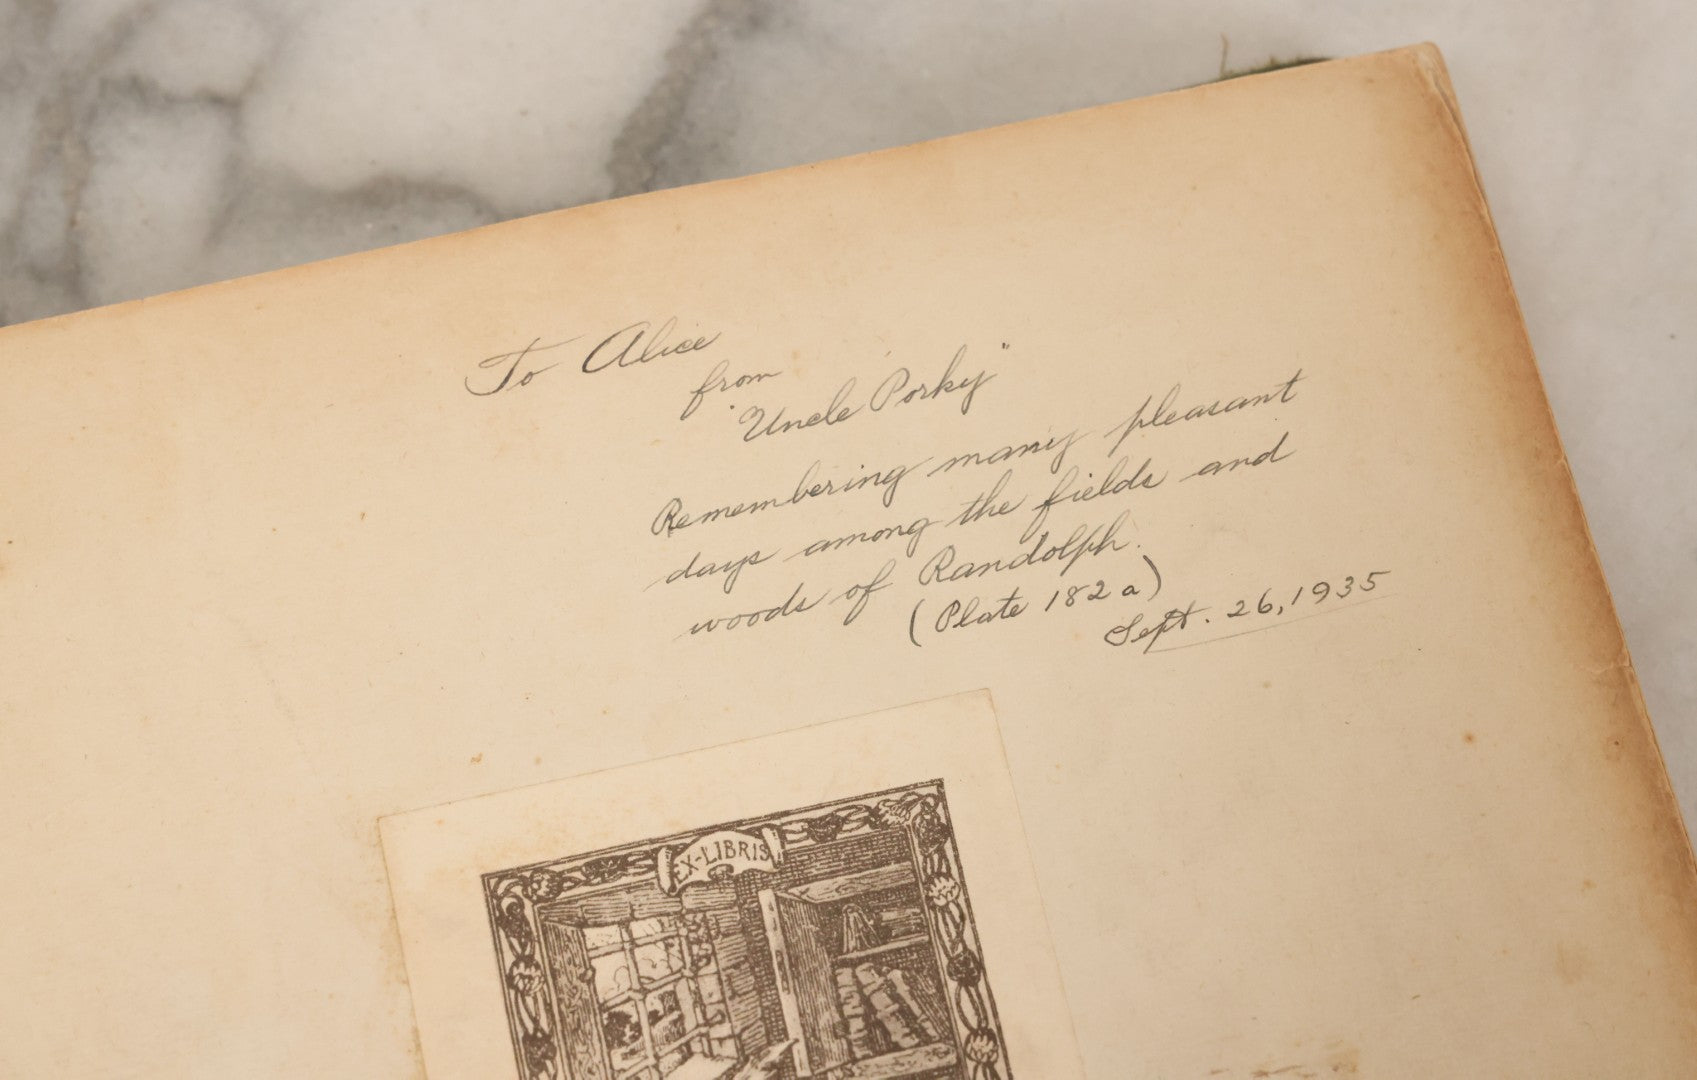 To Alice
from
"Uncle Porky"
Remembering many pleasant
days among the fields and
woods of Randolph.
(Plate 182 a)
Sept. 26, 1935
EX-LIBRIS